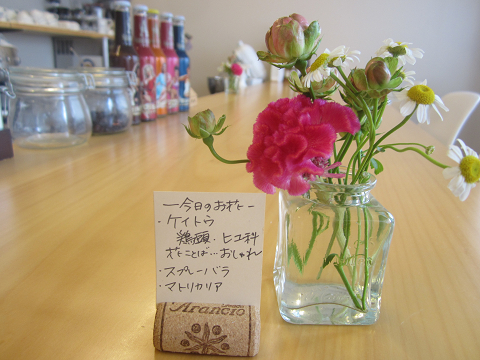 ー今日のお花ー
・ケイトウ
鶏頭・ヒユ科
花ことば…おしゃれ
・スプレーバラ
・マトリカリア
Arancio